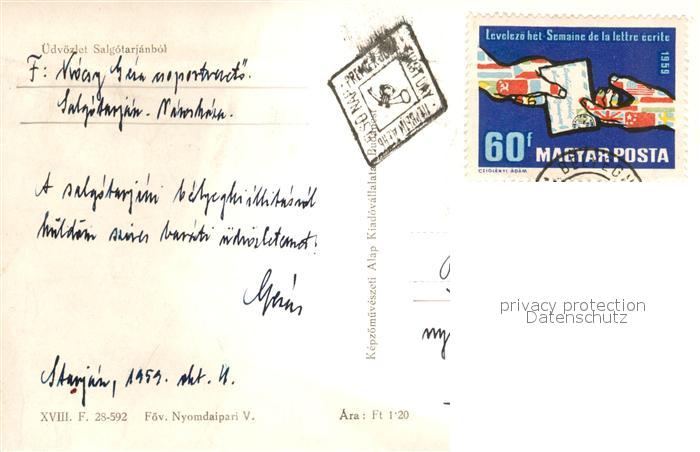 Üdvözlet Salgótarjánból
F: Géza
Salgótarján - Városháza.
A salgótarjáni bélyegkiállításról
küldöm szíves baráti üdvözletemet:
Géza
Starján, 1959. okt. 4.
XVIII. F. 28-592 Föv. Nyomdaipari V. Ára: Ft 1·20
Képzőművészeti Alap Kiadóvállalata Budapest
ELSŐ NAP PRIMER JOUR
Levelező hét - Semaine de la lettre écrite
1959
60f MAGYAR POSTA
CZIGLÉNYI ÁDÁM
ny
privacy protection
Datenschutz